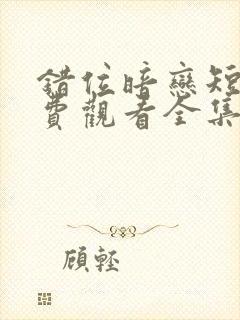 錯位暗戀短
費觀看全集
顧輕